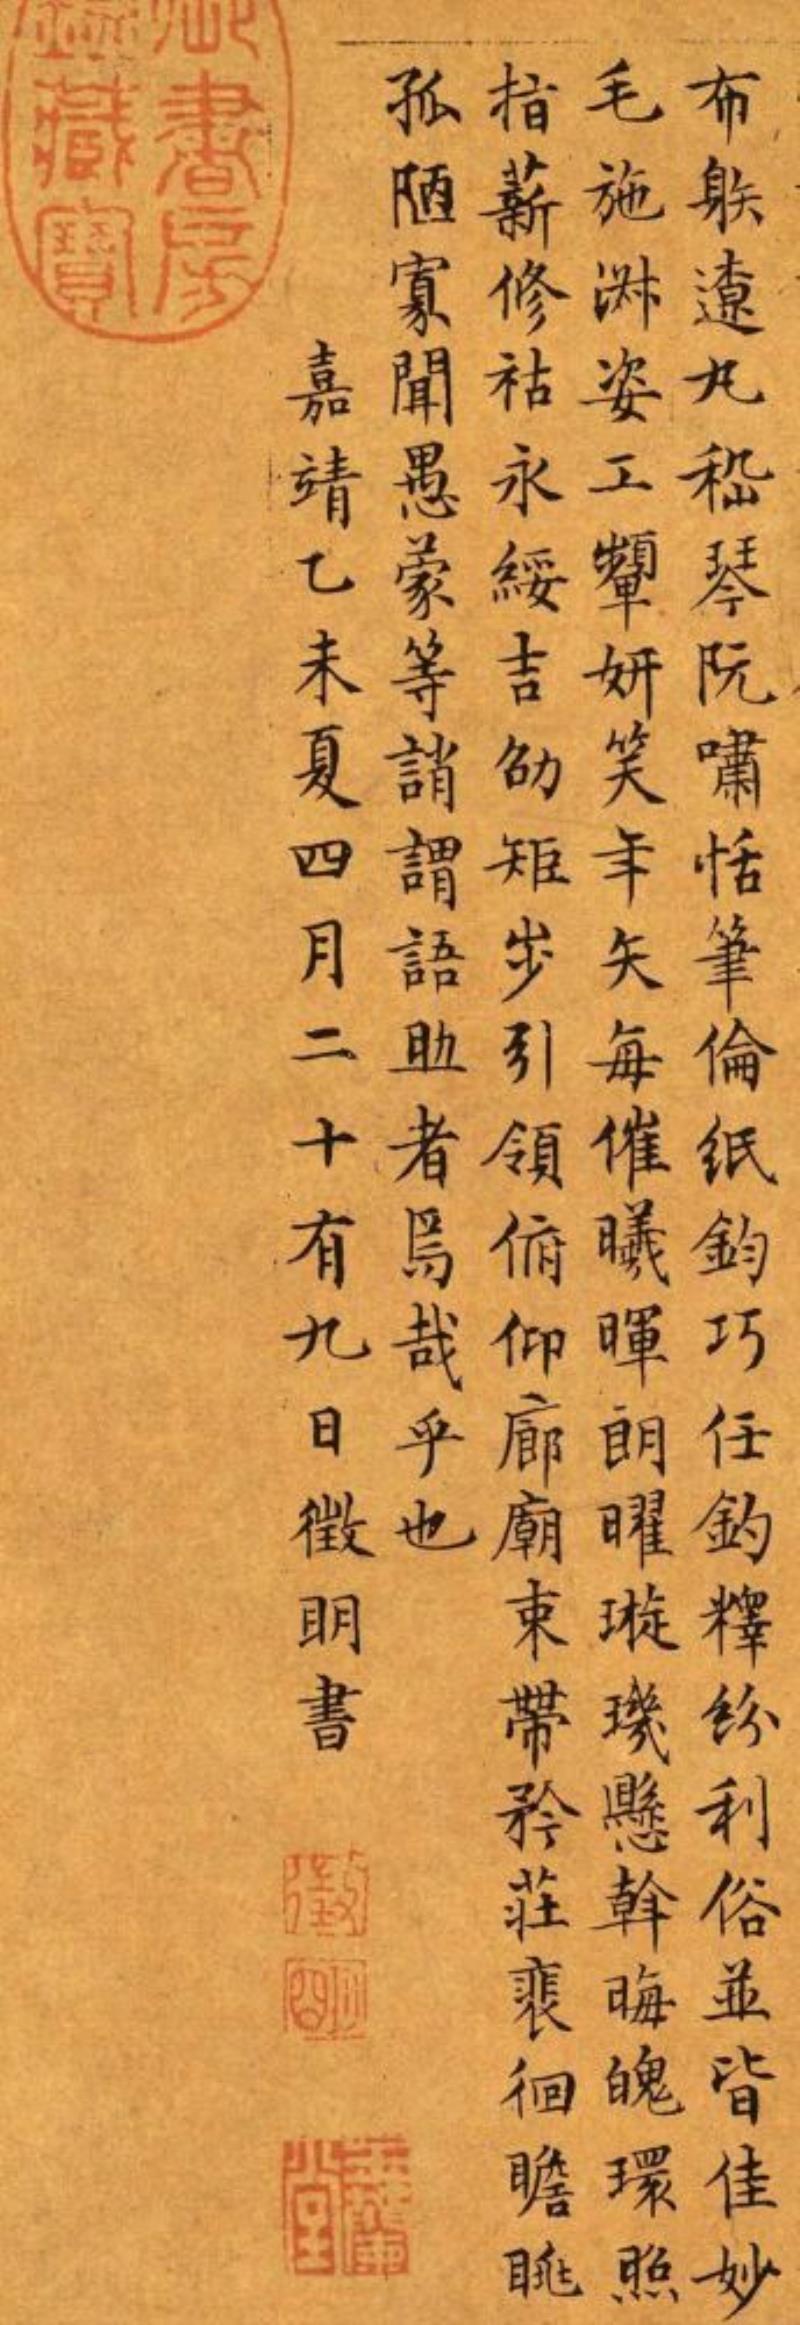 布躲遼丸嵇琴阮嘯恬筆倫紙鈞巧任釣釋紛利俗並皆佳妙
毛施淑姿工顰妍笑年矢每催曦暉朗曜璇璣懸斡晦魄環照
指薪修祜永綏吉劭矩步引領俯仰廊廟束帶矜莊裵徊瞻眺
孤陋寡聞愚蒙等誚謂語助者焉哉乎也
嘉靖乙未夏四月二十有九日徵明書
御書房
鑑藏寶
徵
明
玉蘭
堂